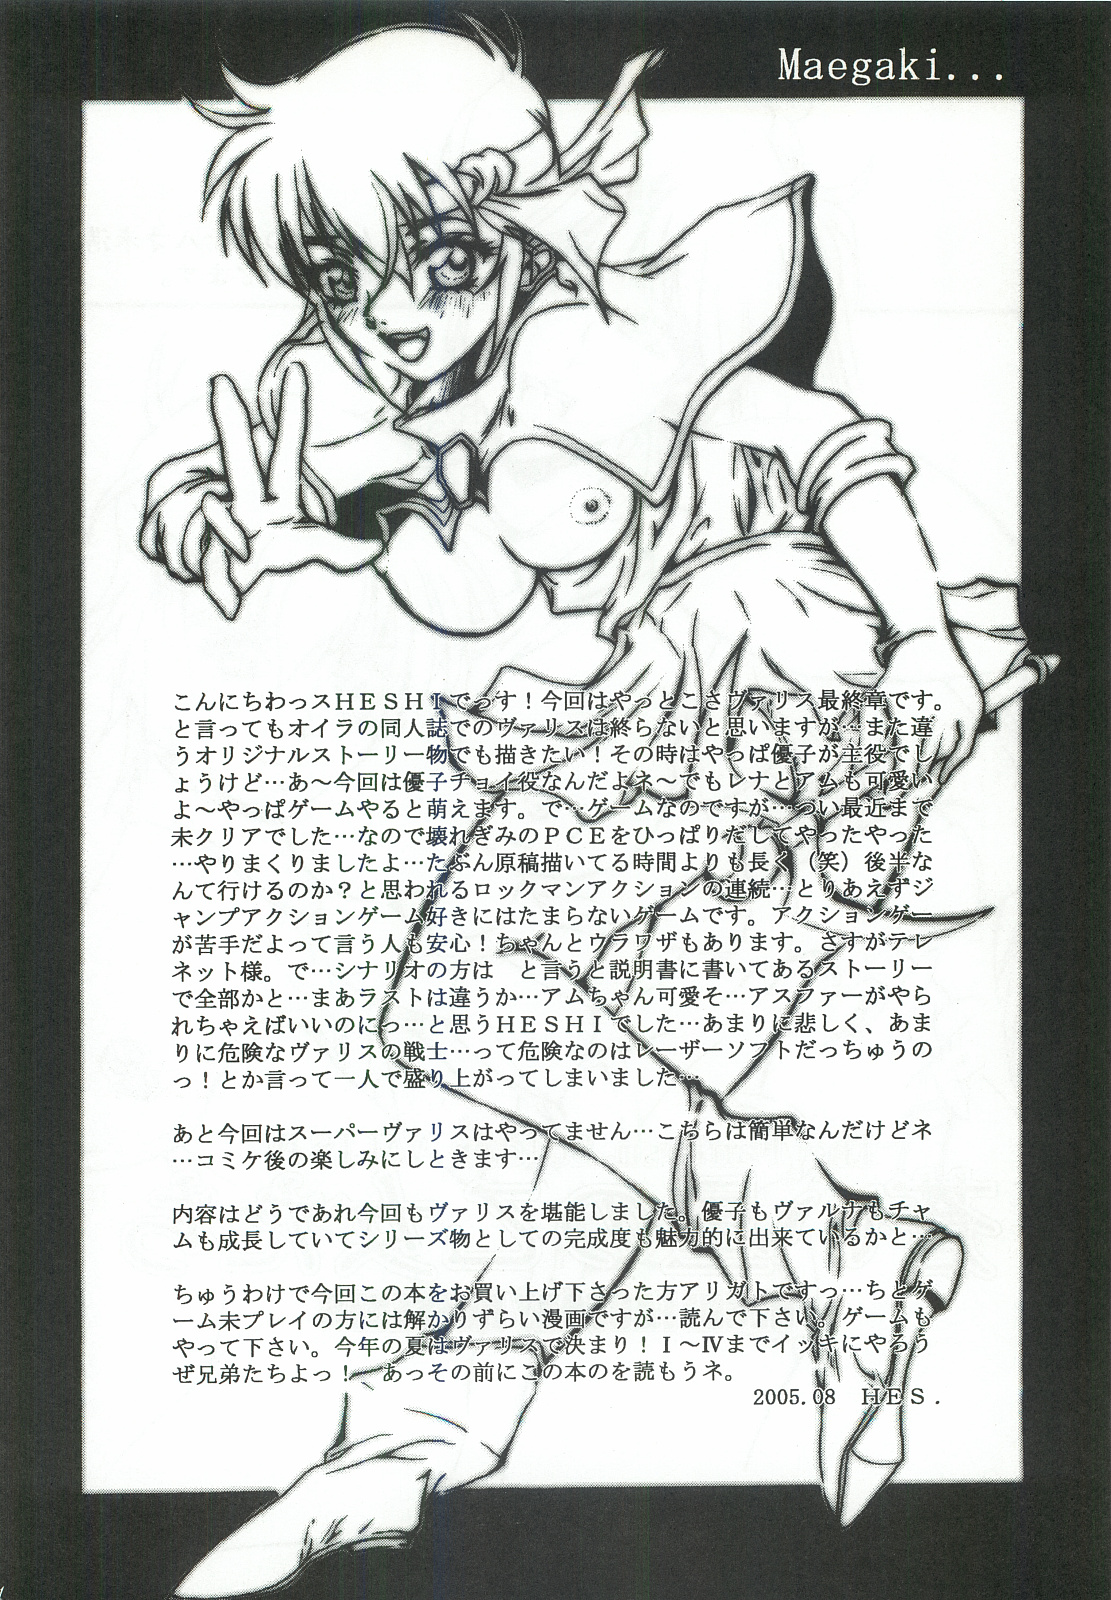 Maegaki...
こんにちわっスＨＥＳＨＩでっす！今回はやっとこさヴァリス最終章です。
と言ってもオイラの同人誌でのヴァリスは終らないと思いますが…また違
うオリジナルストーリー物でも描きたい！その時はやっぱ優子が主役でし
ょうけど…あ～今回は優子チョイ役なんだよネ～でもレナとアムも可愛い
よ～やっぱゲームやると萌えます。で…ゲームなのですが…つい最近まで
未クリアでした…なので壊れぎみのＰＣＥをひっぱりだしてやったやった
…やりまくりましたよ…たぶん原稿描いてる時間よりも長く（笑）後半な
んて行けるのか？と思われるロックマンアクションの連続…とりあえずジ
ャンプアクションゲーム好きにはたまらないゲームです。アクションゲー
が苦手だよって言う人も安心！ちゃんとウラワザもあります。さすがテレ
ネット様。で…シナリオの方は　と言うと説明書に書いてあるストーリー
で全部かと…まあラストは違うか…アムちゃん可愛そ…アスファーがやら
れちゃえばいいのにっ…と思うＨＥＳＨＩでした…あまりに悲しく、あま
りに危険なヴァリスの戦士…って危険なのはレーザーソフトだっちゅうの
っ！とか言って一人で盛り上がってしまいました…
あと今回はスーパーヴァリスはやってません…こちらは簡単なんだけどネ
…コミケ後の楽しみにしときます…
内容はどうであれ今回もヴァリスを堪能しました。優子もヴァルナもチャ
ムも成長していてシリーズ物としての完成度も魅力的に出来ているかと…
ちゅうわけで今回この本をお買い上げ下さった方アリガトですっ…ちとゲ
ーム未プレイの方には解かりずらい漫画ですが…読んで下さい。ゲームも
やって下さい。今年の夏はヴァリスで決まり！Ⅰ～Ⅳまでイッキにやろう
ぜ兄弟たちよっ！　あっその前にこの本のを読もうネ。
2005.08　ＨＥＳ．